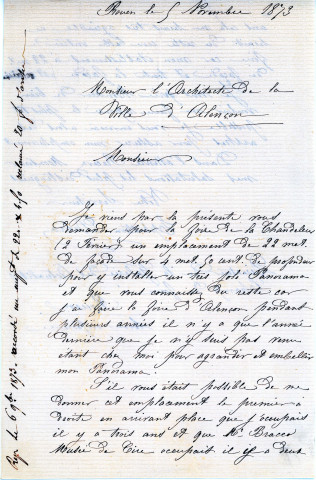 Rouen le 5 Novembre 1873
Monsieur l'Architecte de la
Ville d'Alençon
Monsieur
Je viens par la présente vous
demander pour la foire de la Chandeleur
(2 Févier) un emplacement de 22 met.
de façade sur 4 met. 50 cent. de profondeur
pour y installer un très joli Panorama
et que vous connaissez du reste car
j'ai faite la foire d'Alençon pendant
plusieurs années il n'y a que l'année
dernière que je n'y suis pas venu
étant chez moi pour agrandir et embellir
mon Panorama.
S'il vous était possible de me
donner cet emplacement le premier à
droite en arivant place que j'occupais
il y a trois ans et que Mr Bracco
Musée de Cire occupait il y a deux
Rep. le 6 9bre 1873. accordé un empt de 22m x 4,50 reclamé 20 f d'arrhes